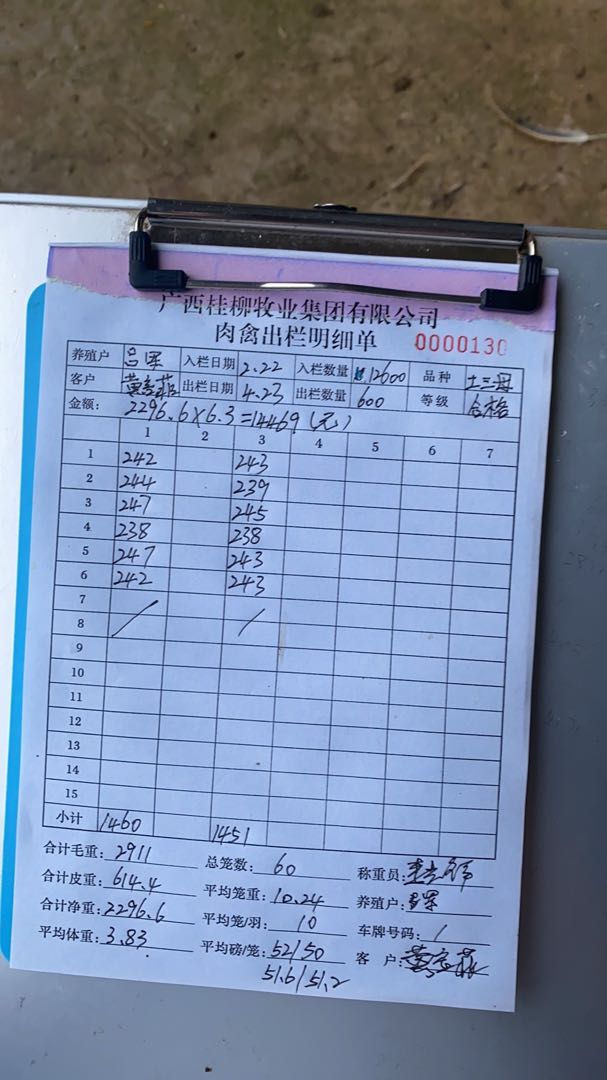 广西桂柳牧业集团有限公司
肉禽出栏明细单 0000130
养殖户 吕军 入栏日期 2.22 入栏数量 12600 品种 土三号
客户 出栏日期 4.23 出栏数量 600 等级 合格
金额: 2296.6×6.3=14469(元)
1 2 3 4 5 6 7
1 242 243
2 244 239
3 247 245
4 238 238
5 247 243
6 242 243
7
8 / /
9
10
11
12
13
14
15
小计 1460 1451
合计毛重: 2911 总笼数: 60 称重员:
合计皮重: 614.4 平均笼重: 10.24 养殖户: 吕军
合计净重: 2296.6 平均笼/羽: 10 车牌号码: /
平均体重: 3.83 平均磅/笼: 52/50 客 户:
51.6/51.2